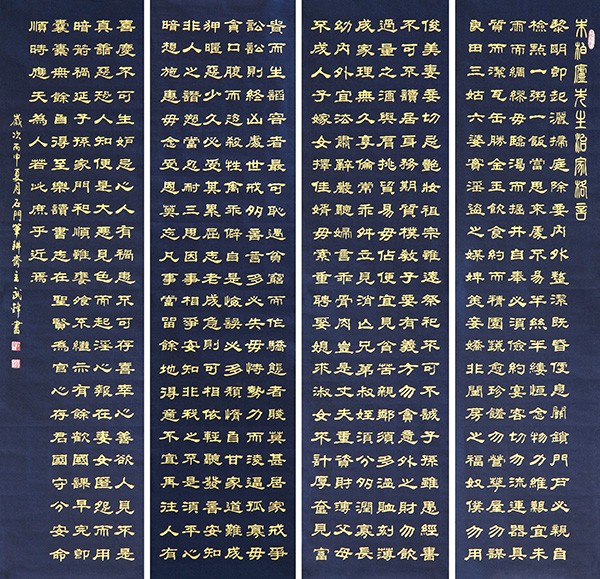 朱柏廬先生治家格言
黎明即起灑掃庭除要內外整潔既昏便息關鎖門戶必親自
檢點一粥一飯當思來處不易半絲半縷恒念物力維艱宜未
雨而綢繆毋臨渴而掘井自奉必須儉約宴客切勿流連器具
質而潔瓦缶勝金玉飲食約而精園蔬愈珍饈勿營華屋勿謀
良田三姑六婆實淫盜之媒婢美妾嬌非閨房之福奴僕勿用
俊美妻妾切忌艷妝祖宗雖遠祭祀不可不誠子孫雖愚經書
不可不讀居身務期質樸教子要有義方勿貪意外之財勿飲
過量之酒與肩挑貿易毋佔便宜見貧苦親鄰須多溫恤刻薄
成家理無久享倫常乖舛立見消亡兄弟叔姪須分多潤寡長
幼內外宜法肅辭嚴聽婦言乖骨肉豈是丈夫重資財薄父母
不成人子嫁女擇佳婿毋索重聘娶媳求淑女不計厚奩見富
貴而生諂容者最可恥遇貧窮而作驕態者賤莫甚居家戒爭
訟訟則終凶處世戒多言言多必失毋恃勢力而凌逼孤寡毋
貪口腹而恣殺牲禽乖僻自是悔誤必多頹惰自甘家道難成
狎暱惡少久必受其累屈志老成急則可相依輕聽發言安知
非人之譖愬當忍耐三思因事相爭安知非我之不是須平心
暗想施惠毋念受恩莫忘凡事當留餘地得意不宜再往人有
喜慶不可生妒忌心人有禍患不可存喜幸心善欲人見不是
真善惡恐人知便是大惡見色而起淫心報在妻女匿怨而用
暗箭禍延子孫家門和順雖饔飧不繼亦有餘歡國課早完即
囊橐無餘自得至樂讀書志在聖賢為官心存君國守分安命
順時應天為人若此庶乎近焉
歲次丙申夏月石門筆耕齋主武錚書